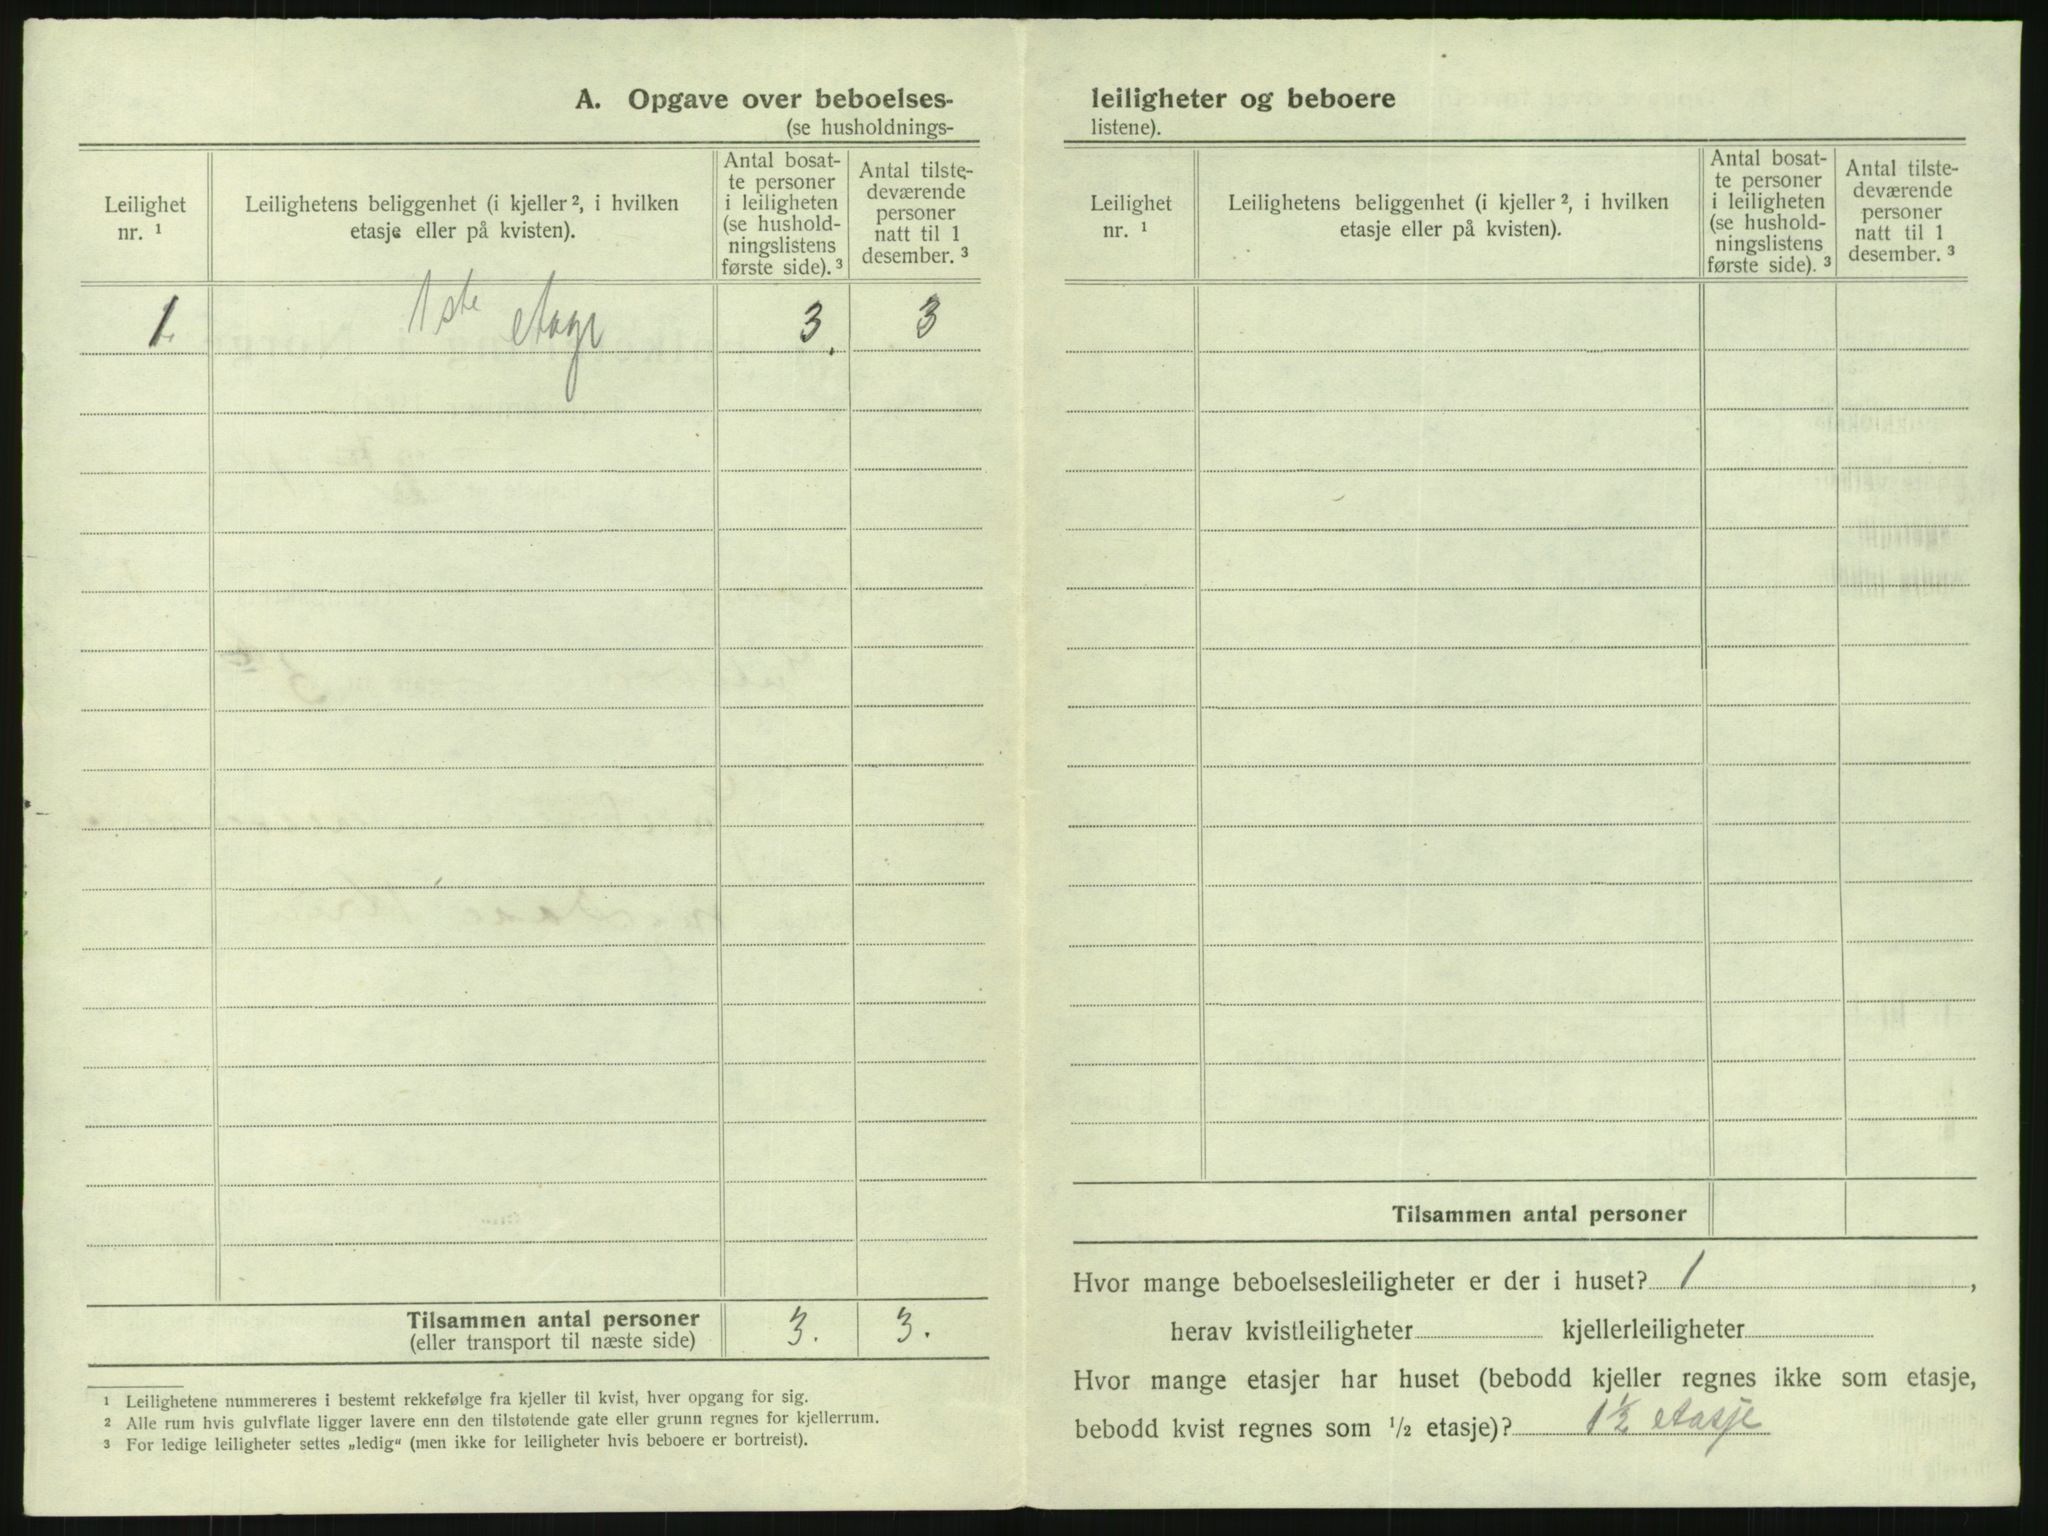 A. Opgave over beboelses-
(se husholdnings-
Leilighet
nr. ¹
Leilighetens beliggenhet (i kjeller ², i hvilken
etasje eller på kvisten).
Antal bosat-
te personer
i leiligheten
(se hushold-
ningslistens
første side). ³
Antal tilste-
deværende
personer
natt til 1
desember. ³
1. 1ste etage 3. 3
Tilsammen antal personer
(eller transport til næste side)
3. 3.
¹ Leilighetene nummereres i bestemt rekkefølge fra kjeller til kvist, hver opgang for sig.
² Alle rum hvis gulvflate ligger lavere enn den tilstøtende gate eller grunn regnes for kjellerrum.
³ For ledige leiligheter settes „ledig“ (men ikke for leiligheter hvis beboere er bortreist).
leiligheter og beboere
listene).
Leilighet
nr. ¹
Leilighetens beliggenhet (i kjeller ², i hvilken
etasje eller på kvisten).
Antal bosat-
te personer
i leiligheten
(se hushold-
ningslistens
første side). ³
Antal tilste-
deværende
personer
natt til 1
desember. ³
Tilsammen antal personer
Hvor mange beboelsesleiligheter er der i huset? 1 ,
herav kvistleiligheter kjellerleiligheter
Hvor mange etasjer har huset (bebodd kjeller regnes ikke som etasje,
bebodd kvist regnes som ½ etasje)? 1½ etasje